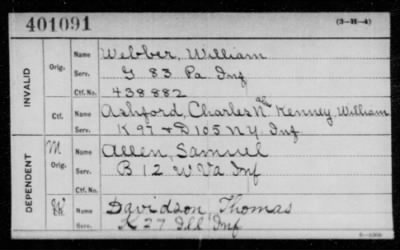 401091
(3-H-4)
INVALID
Orig.
Name Webber, William
Serv. G 83 Pa Inf
Ctf. No. 438882
Ctf.
Name Ashford, Charles N alias Kenney, William
Serv. K 97 & D 105 N Y Inf
DEPENDENT
M
Orig.
Name Allen, Samuel
Serv. B 12 W Va Inf
Ctf. No.
W
Name Davidson, Thomas
Serv. K 27 Ill Inf